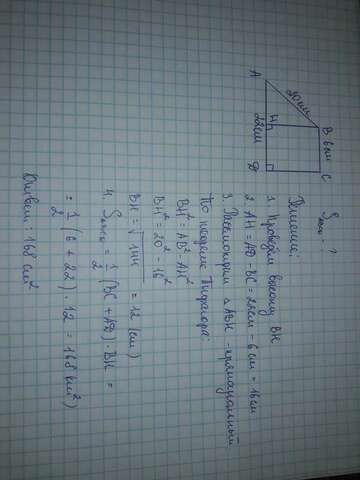 A
B
C
D
H
20 см
6 см
22 см
Sтрап. - ?
Решение:
1. Проведём высоту BH.
2. AH = AD - BC = 22см - 6 см = 16 см
3. Рассмотрим △ ABH - прямоугольный
По теореме Пифагора:
BH² = AB² - AH²
BH² = 20² - 16²
BH = √144 = 12 (см)
4. Sтрап = 1/2 (BC + AD) · BH =
= 1/2 (6 + 22) · 12 = 168 (см²)
Ответ: 168 см²